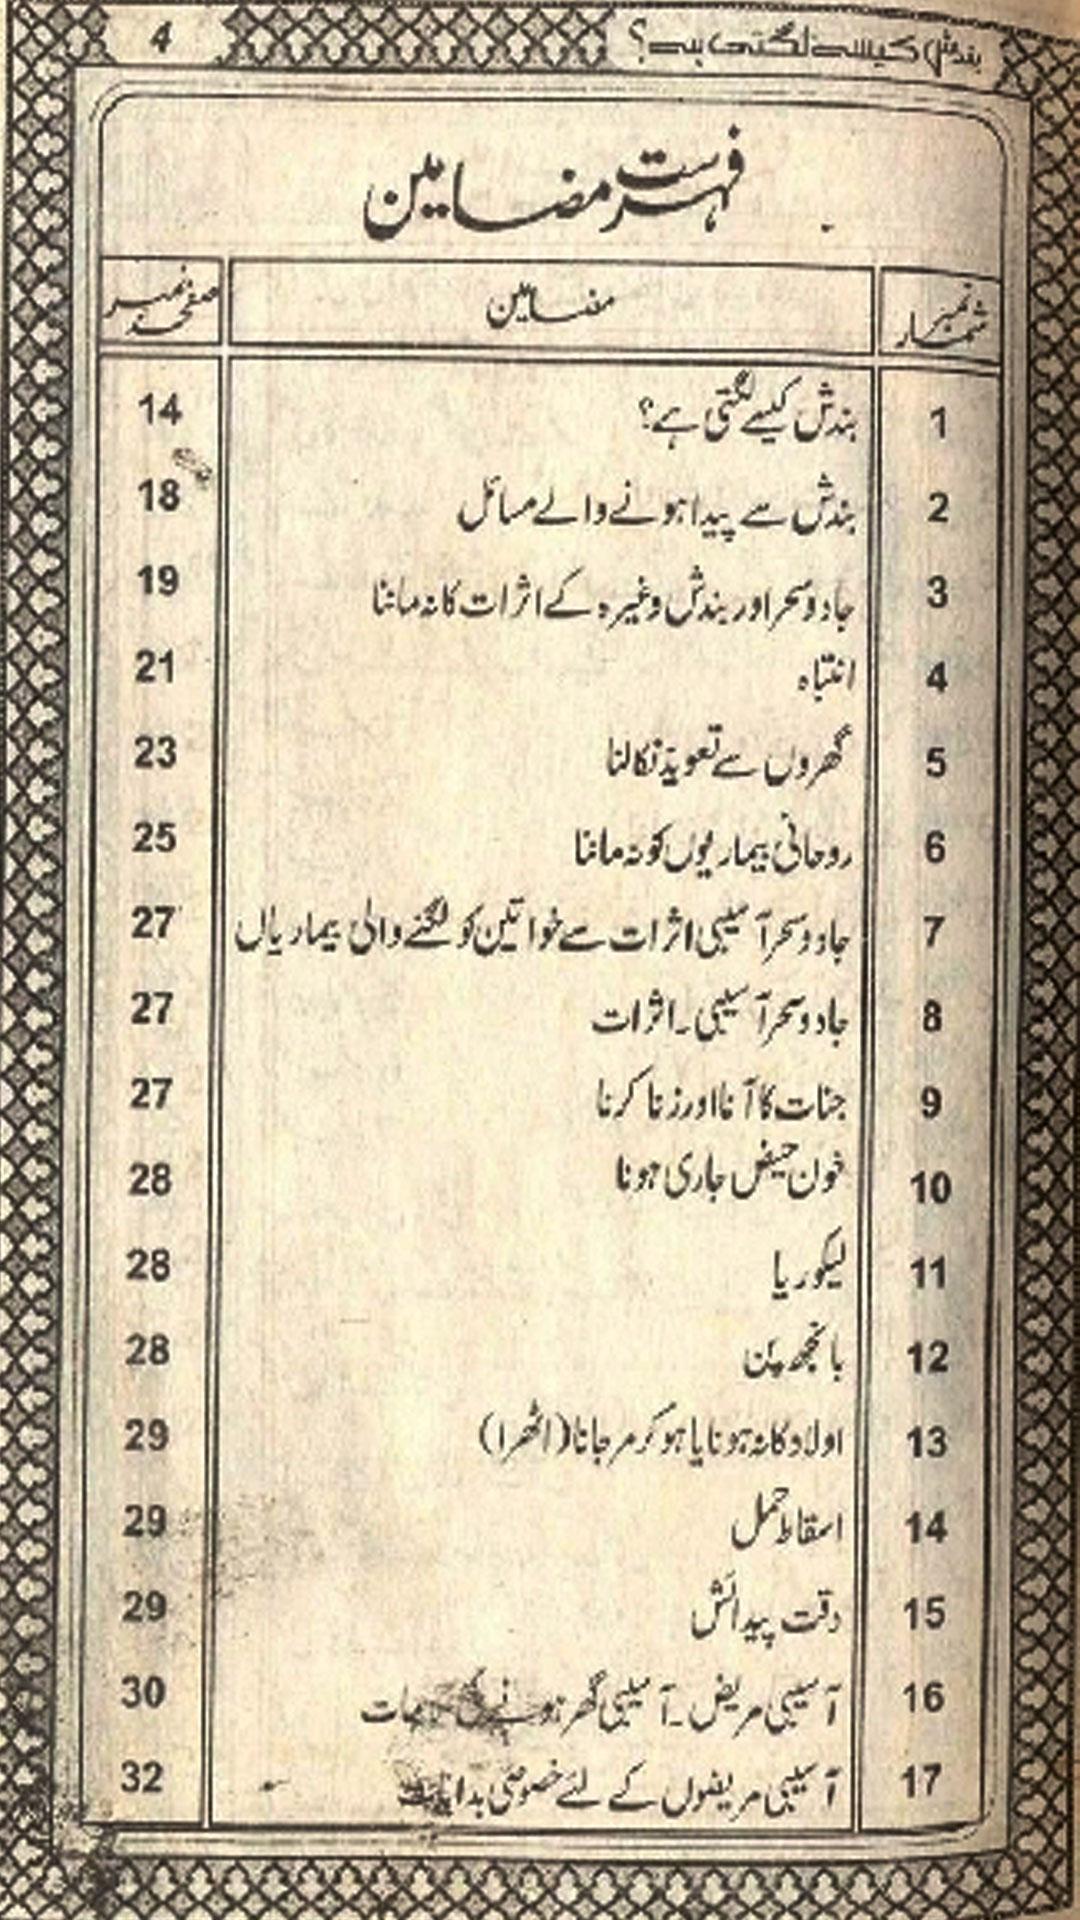 بندش کیسے لگتی ہے؟ 4
فہرست مضامین
نمبر شمار مضامین صفحہ نمبر
1 بندش کیسے لگتی ہے؟ 14
2 بندش سے پیدا ہونے والے مسائل 18
3 جادو سحر اور بندش وغیرہ کے اثرات کا نہ ماننا 19
4 انتباہ 21
5 گھروں سے تعویذ نکالنا 23
6 روحانی بیماریوں کو نہ ماننا 25
7 جادو سحر آسیبی اثرات سے خواتین کو لگنے والی بیماریاں 27
8 جادو سحر آسیبی۔اثرات 27
9 جنات کا آنا اور زنا کرنا 27
10 خون حیض جاری ہونا 28
11 لیکوریا 28
12 بانجھ پن 28
13 اولاد کا نہ ہونا یا ہو کر مر جانا (اٹھرا) 29
14 اسقاط حمل 29
15 دقت پیدائش 29
16 آسیبی مریض۔آسیبی گھر ہونے کی 30
17 آسیبی مریضوں کے لئے خصوصی 32